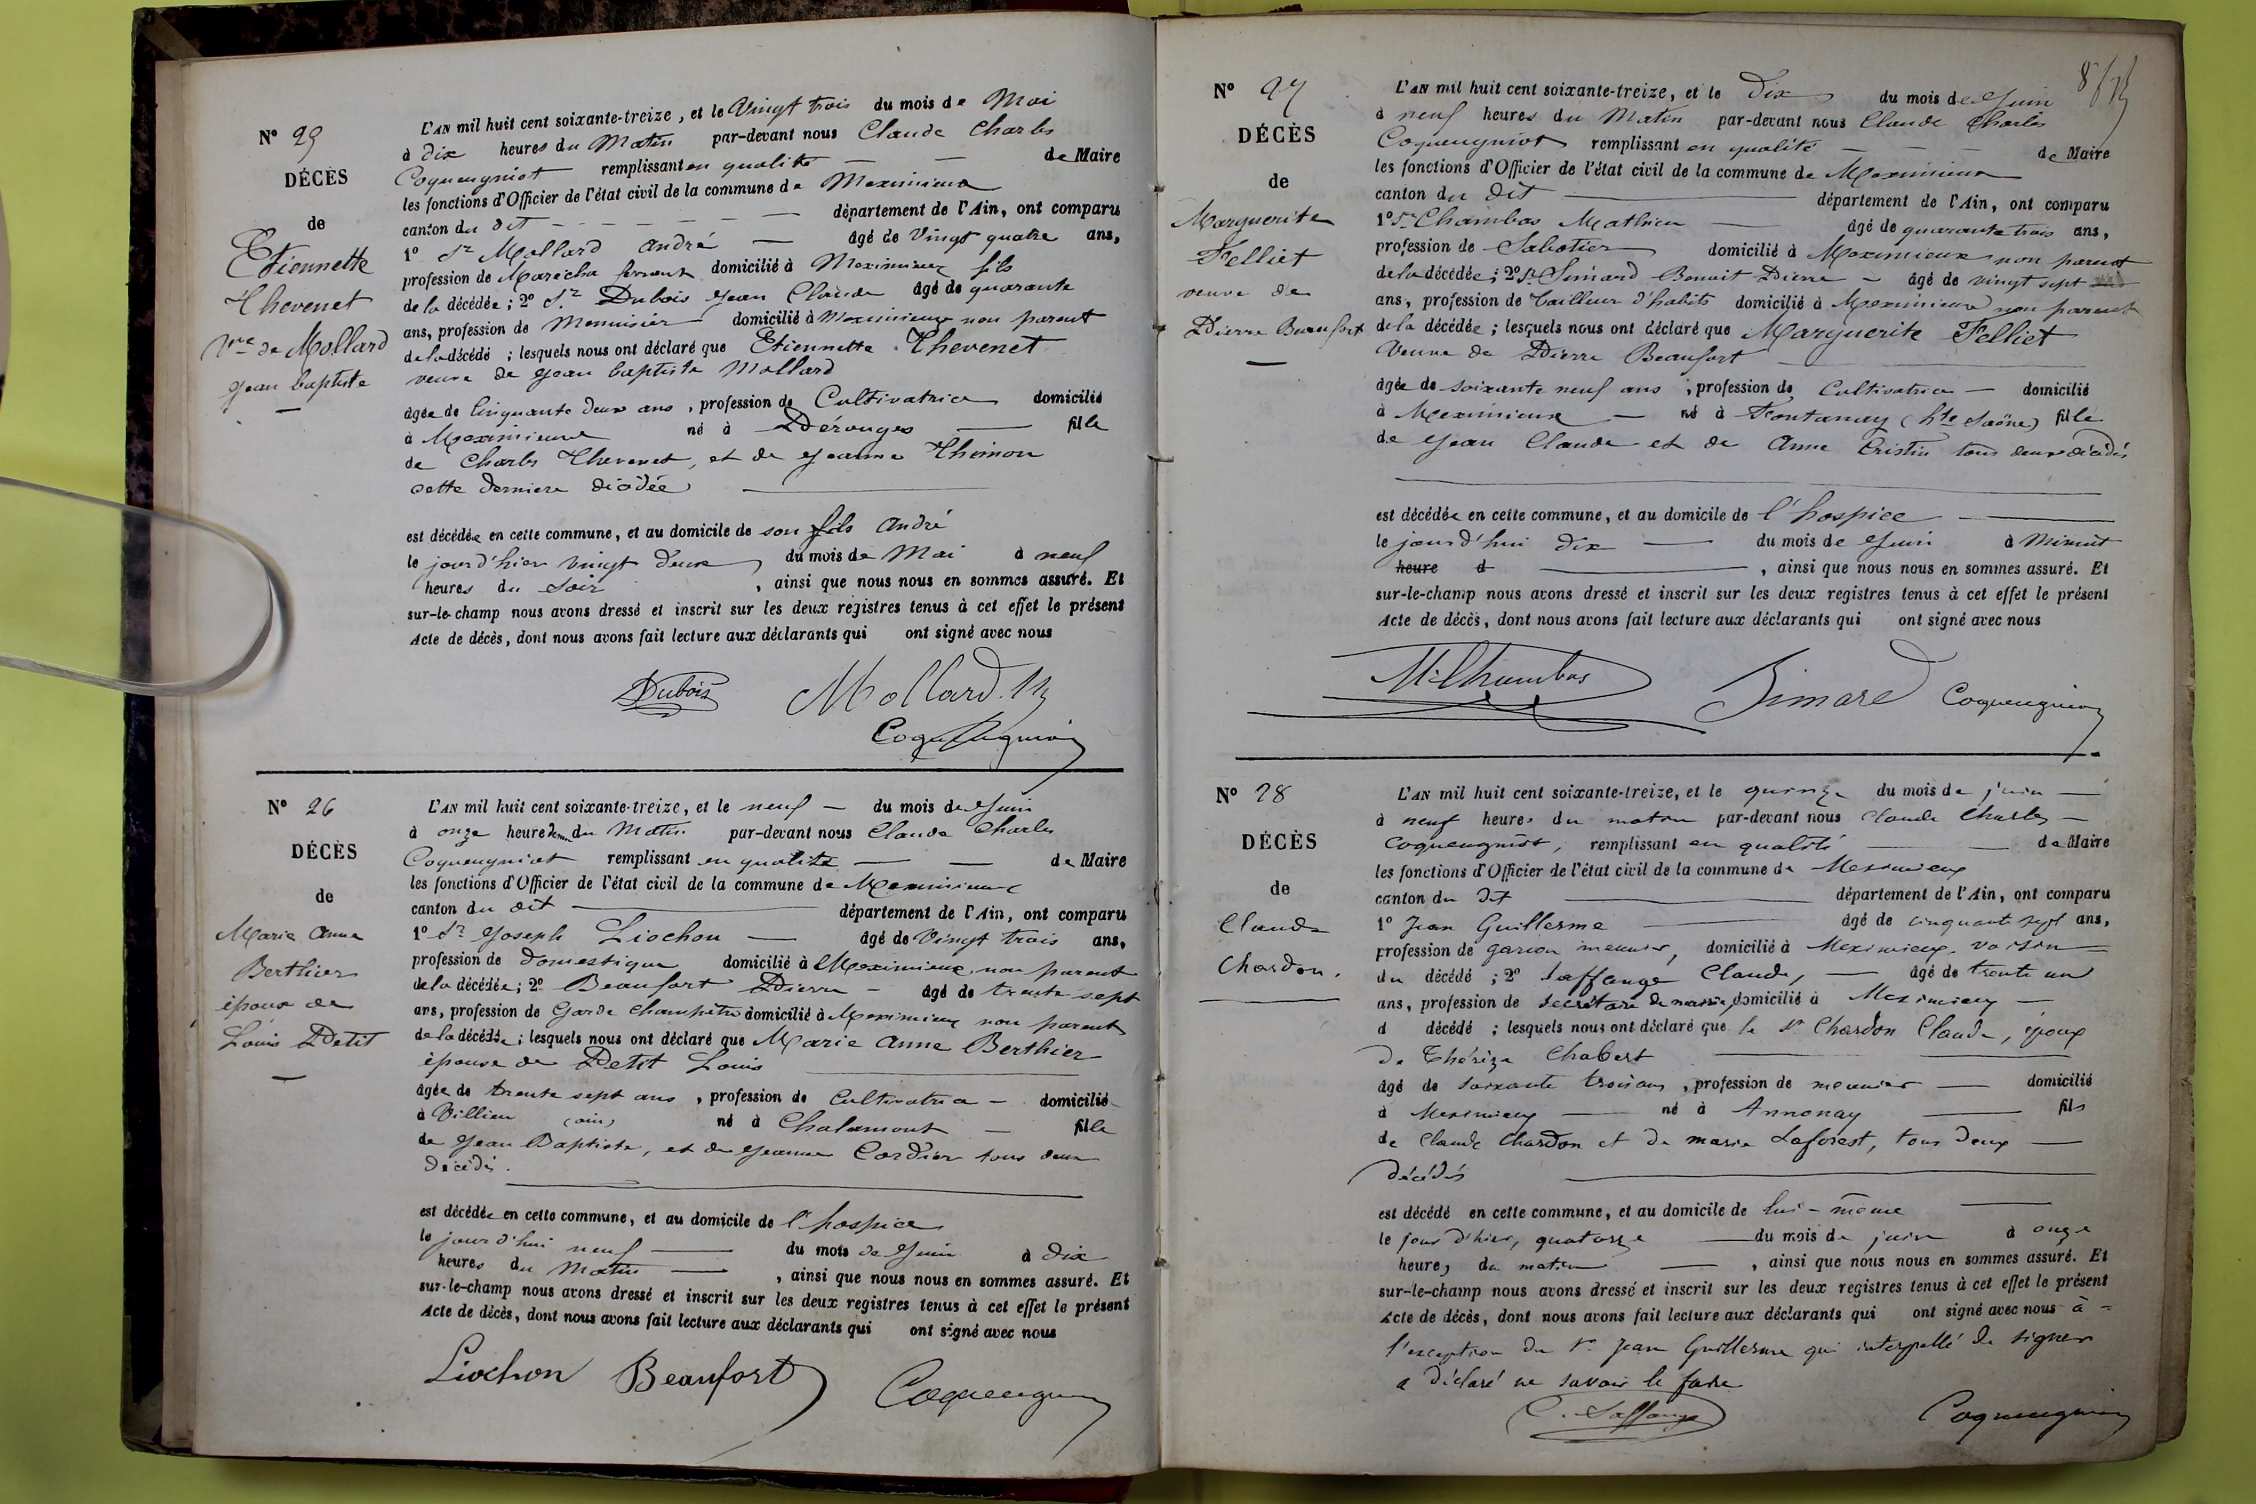 N° 25
DÉCÈS
de
Etiennette
Thevenet
Vve de Mollard
Jean Baptiste
L'AN mil huit cent soixante-treize, et le Vingt trois du mois de Mai
à Dix heures du Matin par-devant nous Claude Charles
Coqueugniot remplissant en qualité — — de Maire
les fonctions d'Officier de l'état civil de la commune de Meximieux
canton du dit — — — — département de l'Ain, ont comparu
1° Sr Mollard André — âgé de Vingt quatre ans,
profession de Maréchal ferrant domicilié à Meximieux fils
de la décédée ; 2° Sr Dubois Jean Claude âgé de quarante
ans, profession de Menuisier domicilié à Meximieux non parent
de la décédé ; lesquels nous ont déclaré que Etiennette Thevenet
veuve de Jean Baptiste Mollard
âgée de Cinquante deux ans, profession de Cultivatrice domicilié
à Meximieux né à Pérouges — fille
de Charles Thevenet, et de Jeanne Thimon
cette derniere décédée
est décédée en cette commune, et au domicile de son fils André
le jour d'hier vingt deux du mois de Mai à neuf
heures du Soir, ainsi que nous nous en sommes assuré. Et
sur-le-champ nous avons dressé et inscrit sur les deux registres tenus à cet effet le présent
Acte de décès, dont nous avons fait lecture aux déclarants qui ont signé avec nous
Dubois Mollard
Coqueugniot
N° 26
DÉCÈS
de
Marie Anne
Berthier
épouse de
Louis Petit
L'AN mil huit cent soixante-treize, et le neuf — du mois de Juin
à onze heures du Matin par-devant nous Claude Charles
Coqueugniot remplissant en qualité — — de Maire
les fonctions d'Officier de l'état civil de la commune de Meximieux
canton du dit — département de l'Ain, ont comparu
1° Sr Joseph Liochon — âgé de Vingt trois ans,
profession de Domestique domicilié à Meximieux non parent
de la décédée ; 2° Beaufort Pierre — âgé de trente sept
ans, profession de Garde Champêtre domicilié à Meximieux non parent
de la décédée ; lesquels nous ont déclaré que Marie Anne Berthier
épouse de Petit Louis
âgée de trente sept ans, profession de Cultivatrice — domicilié
à Villieu (ain) né à Chalamont — fille
de Jean Baptiste, et de Jeanne Cordier tous deux
décédés.
est décédée en cette commune, et au domicile de l'hospice
le jour d'hui neuf — du mois de Juin à dix
heures du Matin —, ainsi que nous nous en sommes assuré. Et
sur-le-champ nous avons dressé et inscrit sur les deux registres tenus à cet effet le présent
Acte de décès, dont nous avons fait lecture aux déclarants qui ont signé avec nous
Liochon Beaufort Coqueugniot
N° 27
DÉCÈS
de
Marguerite
Felliet
veuve de
Pierre Beaufort
L'AN mil huit cent soixante-treize, et le Dix du mois de Juin
à neuf heures du Matin par-devant nous Claude Charles
Coqueugniot remplissant en qualité — — — de Maire
les fonctions d'Officier de l'état civil de la commune de Meximieux
canton du dit — département de l'Ain, ont comparu
1° Sr Chambas Mathieu — âgé de quarante trois ans,
profession de Sabotier domicilié à Meximieux non parent
de la décédée ; 2° Sr Simard Benoit Pierre — âgé de vingt sept
ans, profession de Tailleur d'habits domicilié à Meximieux non parent
de la décédée ; lesquels nous ont déclaré que Marguerite Felliet
Veuve de Pierre Beaufort —
âgée de soixante neuf ans, profession de Cultivatrice — domicilié
à Meximieux — né à Fontanay (hte Saône) fille
de Jean Claude et de Anne Cristin tous deux décédés
est décédée en cette commune, et au domicile de l'hospice —
le jour d'hui dix — du mois de Juin à Minuit
heure d —, ainsi que nous nous en sommes assuré. Et
sur-le-champ nous avons dressé et inscrit sur les deux registres tenus à cet effet le présent
Acte de décès, dont nous avons fait lecture aux déclarants qui ont signé avec nous
M. Chambas Simard Coqueugniot
N° 28
DÉCÈS
de
Claude
Chardon.
L'AN mil huit cent soixante-treize, et le quinze du mois de juin —
à neuf heures du matin par-devant nous Claude Charles —
Coqueugniot, remplissant en qualité — — de Maire
les fonctions d'Officier de l'état civil de la commune de Meximieux
canton du dit — département de l'Ain, ont comparu
1° Jean Guillerme — âgé de cinquante sept ans,
profession de garçon meunier, domicilié à Meximieux, voisin
du décédé ; 2° Laffange Claude, — âgé de trente un
ans, profession de secrétaire de mairie, domicilié à Meximieux —
d décédé ; lesquels nous ont déclaré que le Sr Chardon Claude, époux
de Thérèze Chabert —
âgé de soixante trois ans, profession de meunier — domicilié
à Meximieux — né à Annonay — fils
de Claude Chardon et de marie Laforest, tous deux —
décédés
est décédé en cette commune, et au domicile de lui-même —
le jour d'hier, quatorze — du mois de juin à onze
heures du matin —, ainsi que nous nous en sommes assuré. Et
sur-le-champ nous avons dressé et inscrit sur les deux registres tenus à cet effet le présent
Acte de décès, dont nous avons fait lecture aux déclarants qui ont signé avec nous à
l'exception du Sr Jean Guillerme qui interpellé de signer
a déclaré ne savoir le faire
C. Laffange Coqueugniot